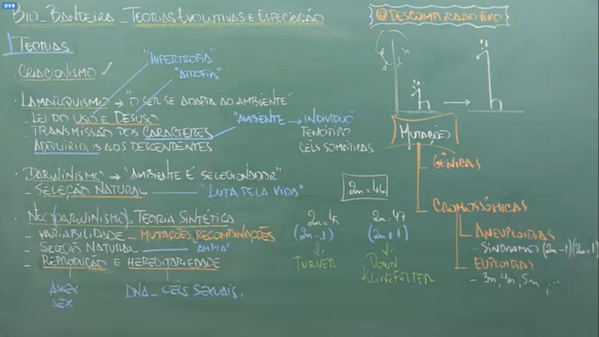 DVR
BIO_BANDEIRA_TEORIAS EVOLUTIVAS E ESPECIAÇÃO
@DESCOMPLICADOAOVIVO
TEORIAS
"HIPERTROFIA"
"ATROFIA"
. CRIACIONISMO
. LAMARQUISMO → "O SER SE ADAPTA AO AMBIENTE"
- LEI DO USO E DESUSO
- TRANSMISSÃO DOS CARACTERES
ADQUIRIDOS AOS DESCENDENTES
"AMBIENTE → INDIVÍDUO"
FENÓTIPO
CÉLS SOMÁTICAS
. DARWINISMO → "AMBIENTE É SELECIONADOR"
- SELEÇÃO NATURAL
"LUTA PELA VIDA"
. NEO(DARWINISMO)= TEORIA SINTÉTICA
- VARIABILIDADE - MUTAÇÕES, RECOMBINAÇÕES
- SELEÇÃO NATURAL
- REPRODUÇÃO E HEREDITARIEDADE
ASSEX
SEX
DNA_ CÉLS SEXUAIS.
2n=46
2n=45
(2n-1)
TURNER
2n=47
(2n+1)
DOWN
KLINEFELTER
MUTAÇÃO
GÊNICAS
CROMOSSÔMICAS
ANEUPLOIDIAS
- SÍNDROMES (2n-1)(2n+1)
EUPLOIDIAS
- 3n, 4n, 5n, ...